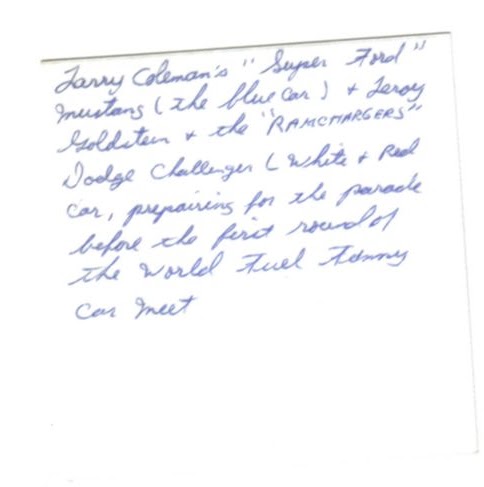 Larry Coleman's "Super Ford"
Mustang (the blue car) + Leroy
Goldstein + the "RAMCHARGERS"
Dodge Challenger (White + Red
car, prepairing for the parade
before the first round of
the World Fuel Funny
Car Meet